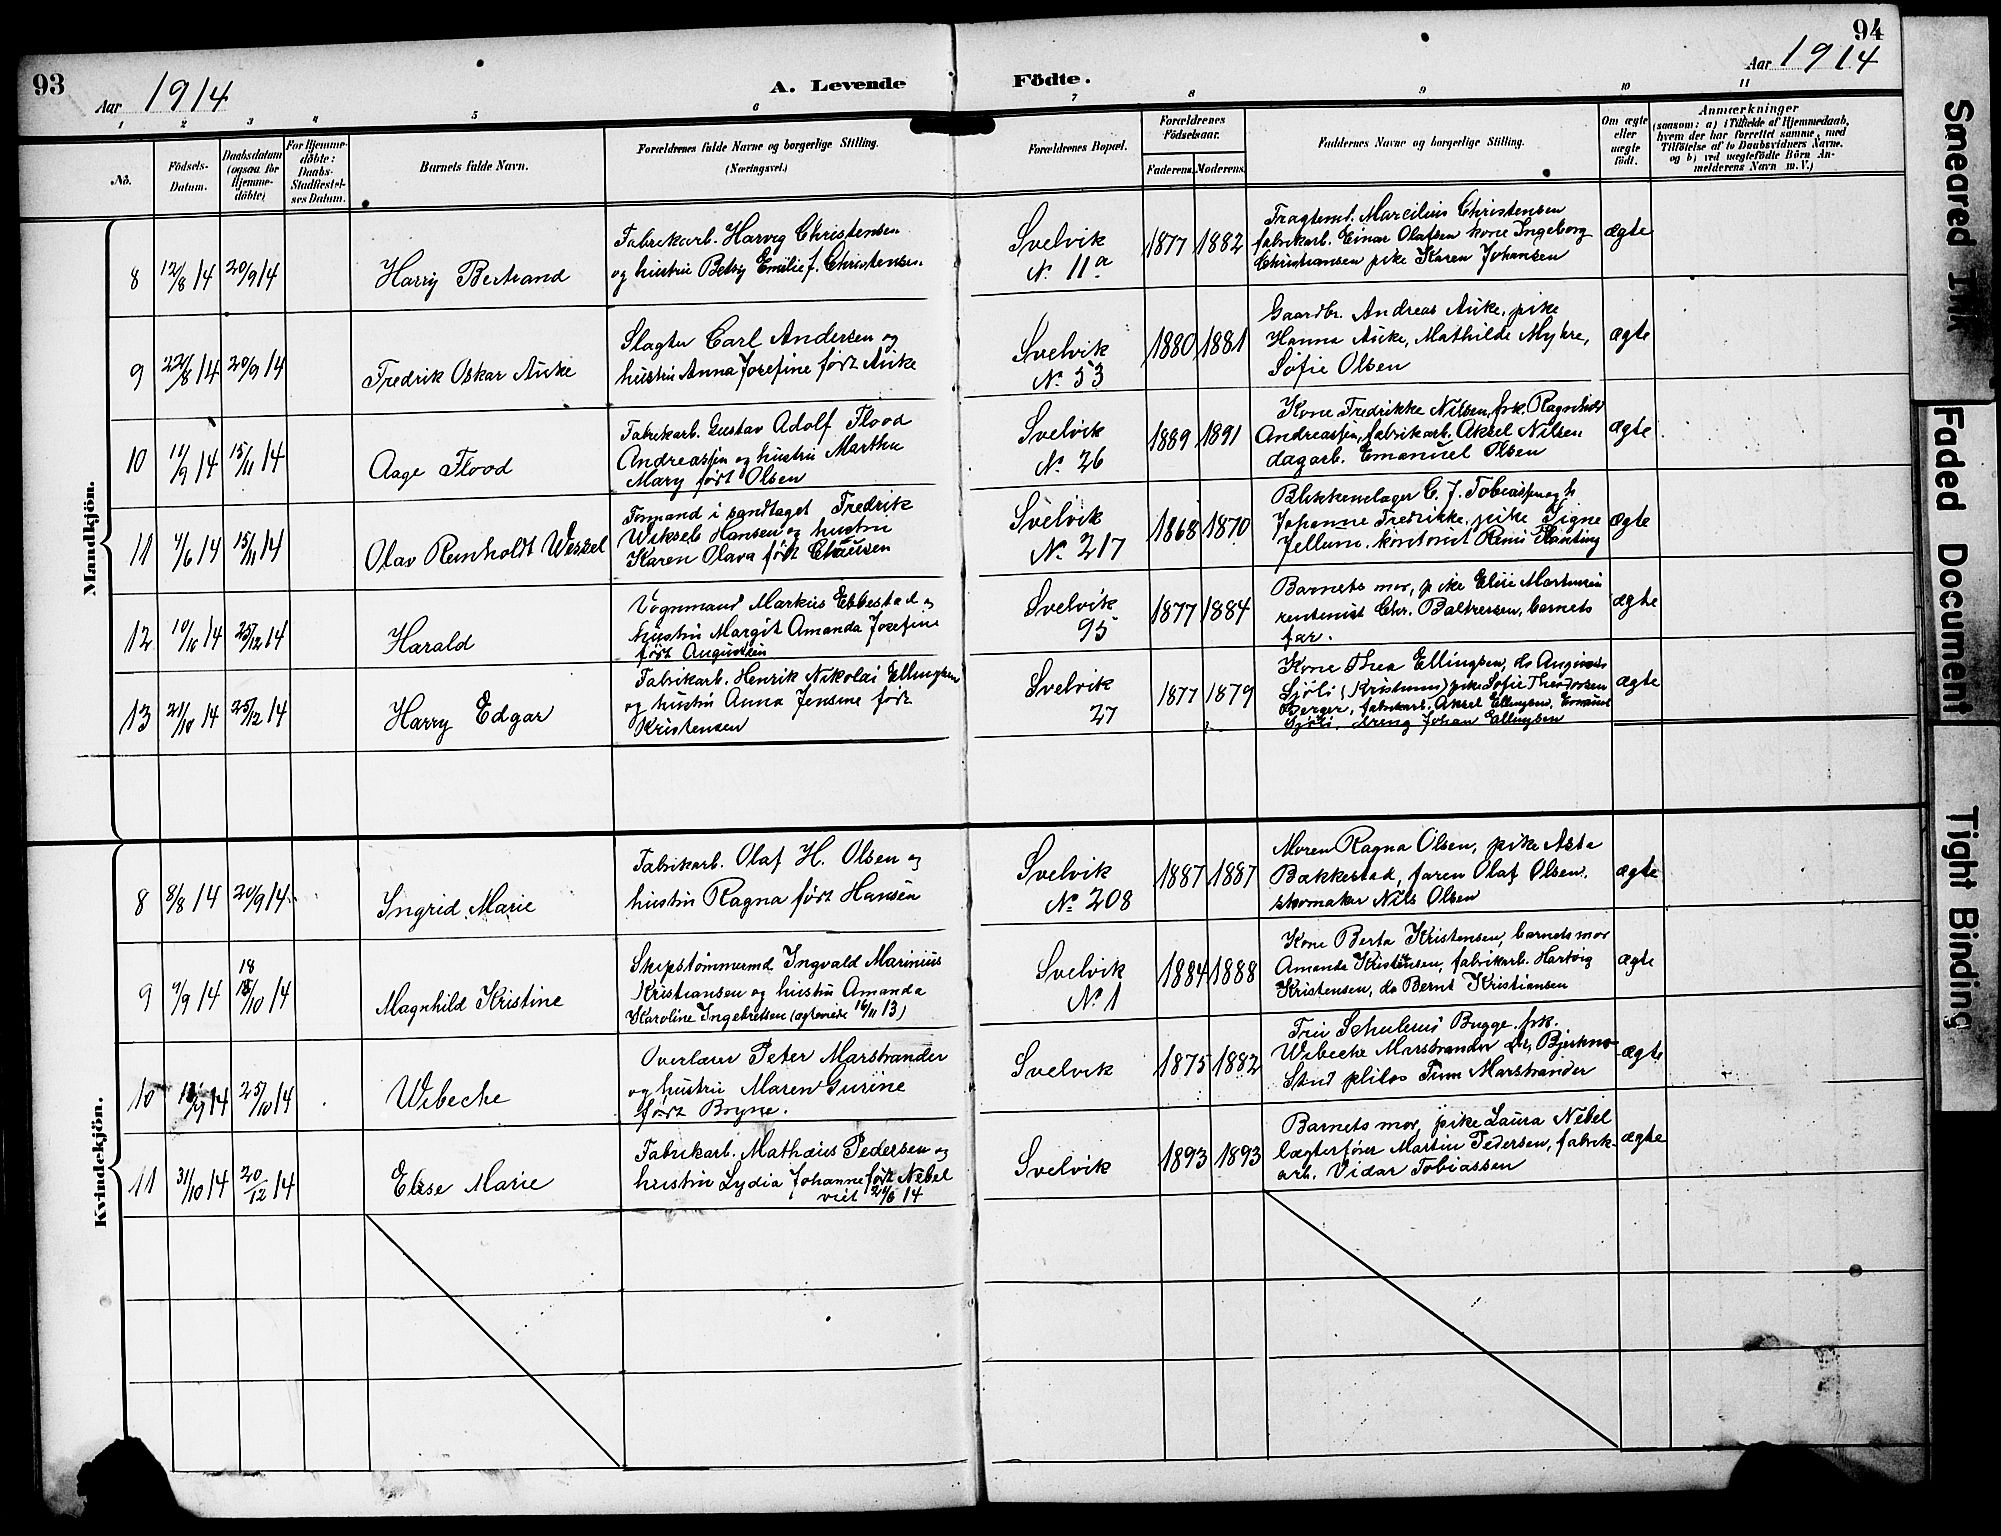 93
Aar 1914
A. Levende
Födte.
94
Aar 1914
1 2 3 4 5 6 7 8 9 10 11
No.
Födsels-Datum.
Daabsdatum (ogsaa for Hjemmedöbte)
For Hjemmedöbte: Daabs-Stadfæstelses Datum.
Barnets fulde Navn.
Forældrenes fulde Navne og borgerlige Stilling. (Næringsvei.)
Forældrenes Bopæl.
Forældrenes Födselsaar.
Faderens. Moderens.
Faddernes Navne og borgerlige Stilling.
Om ægte eller uægte födt.
Anmærkninger
(saasom: a) i Tilfælde af Hjemmedaab, hvem der har forrettet samme, med Tilföielse af to Daabsvidners Navne. og b) ved uægtefödte Börn Anmelderens Navn m. V.)
Mandkjön.
8 12/8 14 20/9 14 Harry Bertrand
Fabrikarb. Harvig Christensen
og hustru Betsy Emilie f. Christensen.
Svelvik
No. 11a
1877 1882
Fragtemd. Marcilius Christensen
fabrikarb. Einar Olafsen kone Ingeborg
Christiansen pike Karen Johansen
ægte
9 22/8 14 20/9 14 Fredrik Oskar Auke
Slagter Carl Andersen og
hustru Anna Josefine født Auke
Svelvik
No. 53
1880 1881
Gaardbr. Andreas Auke, pike
Hanna Auke, Mathilde Myhre,
Sofie Olsen
ægte
10 14 15/11 14 Aage Flood
Fabrikarb. Gustav Adolf Flood
Andreassen og hustru Martha
Mary født Olsen
Svelvik
No. 26
1889 1891
Kone Fredrikke Nilsen, frk. Ragnhild
Andreassen, fabrikarb. Aksel Nilsen
dagarb. Emanuel Olsen
ægte
11 14 15/11 14 Olav Reinholdt Wessel
Formand i sandtaget Fredrik
Wiksels Hansen og hustru
Karen Olava født Clausen
Svelvik
No. 217
1868 1870
Blikkenslager C. J. Tobiassen og h
Johanne Fredrikke, pike Signe
Jellum. kontorist
ægte
12 14 25/12 14 Harald
Vognmand Markus Ebbestad og
hustru Margit Amanda Josefine
født Augustsen
Svelvik
95
1877 1884
Barnets mor, pike Elise Martinsen
rentenist Chr. Baltzersen, barnets
far.
ægte
13 21/10 14 25/12 14 Harry Edgar
Fabrikarb. Henrik Nikolai Ellingsen
og hustru Anna Jensine født
Kristensen
Svelvik
27
1877 1879
Kone Thea Ellingsen, do
Sjöli (Kristians) pike Sofie Theodorsen
Berger, fabrikarb. Aksel Ellingsen,
Sjöli, dreng Johan Ellingsen
ægte
Kvindekjön.
8 8/8 14 20/9 14 Ingrid Marie
Fabrikarb. Olaf H. Olsen og
hustru Ragna født Hansen
Svelvik
No. 208
1887 1887
Moren Ragna Olsen, pike Asta
Bakkestad, faren Olaf Olsen.
skomaker Nils Olsen
ægte
9 14 18/10 14 Magnhild Kristine
Skipstømmermd Ingvald Marinius
Kristiansen og hustru Amanda
Karoline Ingebretsen (ægteviede 16/11 13)
Svelvik
No. 1
1884 1888
Kone Berta Kristensen, barnets mor
Amanda Kristensen, fabrikarb. Hartvig
Kristensen, do Bernt Kristiansen
ægte
10 14 25/10 14 Wibecke
Overlærer Peter Marstrander
og hustru Maren Gurine
født Bryne.
Svelvik
1875 1882
Fru Schulerus Bugge. frk.
Wibecke Marstrander
Stud philos Marstrander
ægte
11 31/10 14 20/12 14 Elise Marie
Fabrikarb. Mathæus Pedersen og
hustru Lydia Johanne født Nebel
viet 14
Svelvik
1893 1893
Barnets mor, pike Laura Nebel
lægterfører Martin Pedersen, fabrik-
arb. Vidar Tobiassen
ægte
Smeared Ink
Faded Document
Tight Binding